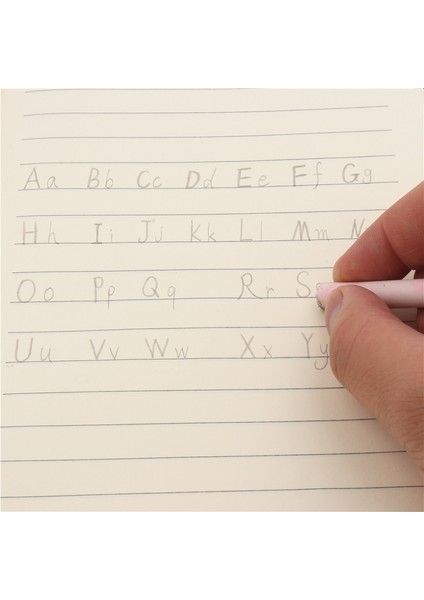 Aa Bb Cc Dd Ee Ff Gg
Hh Ii Jj Kk Ll Mm N
Oo Pp Qq Rr S
Uu Vv Ww Xx Yy